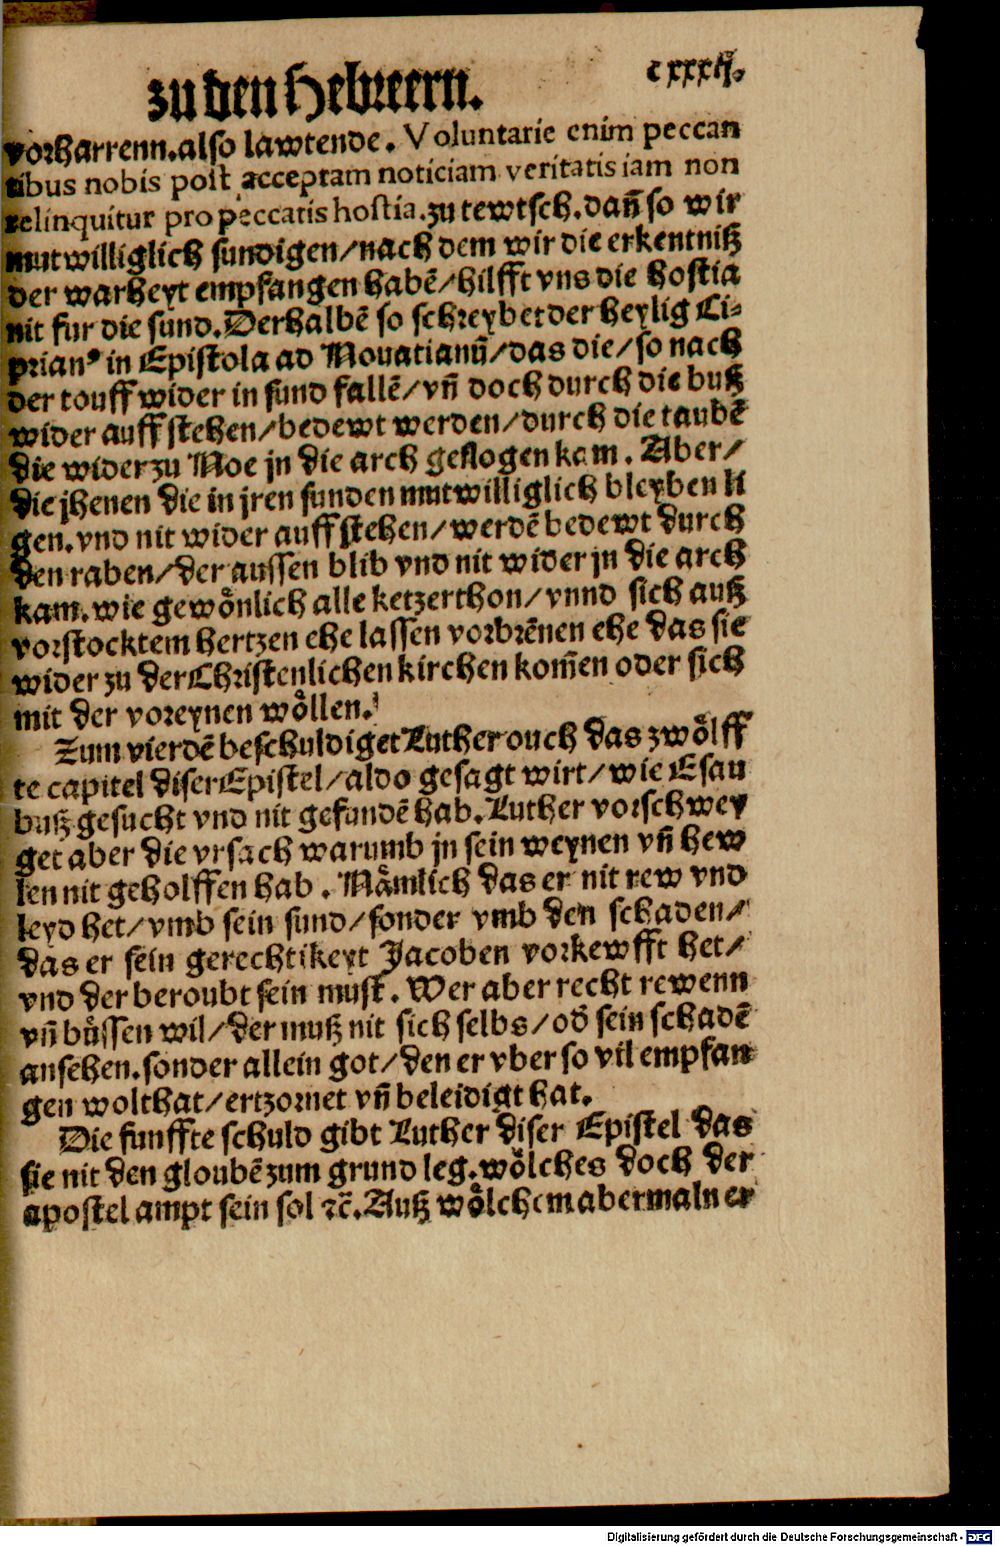 zu den Hebreern. cxxxij.
vorharrenn. also lawtende. Voluntarie enim peccan
tibus nobis post acceptam noticiam veritatis iam non
relinquitur pro peccatis hostia. zu tewtsch. dañ so wir
mutwilliglich sundigen/ nach dem wir die erkentniß
der warheyt empfangen habē/ hilfft vns die hostia
nit fur die sund. Derhalbē so schreybet der heylig Ci⸗
prianꝰ in Epistola ad Nouatianū/ das die/ so nach
der touff wider in sund fallē/ vñ doch durch die buß
wider auff stehen/ bedewt werden/ durch die taubē
die wider zu Noe jn die arch geflogen kam. Aber/
die jhenen die in jren sunden mutwilliglich bleyben li
gen. vnd nit wider auff stehen/ werdē bedewt durch
den raben/ der aussen blib vnd nit wider jn die arch
kam. wie gewönlich alle ketzer thon/ vnnd sich auß
vorstocktem hertzen ehe lassen vorbrēnen ehe das sie
wider zu der Christenlichen kirchen kom̄en oder sich
mit der voreynen wöllen.
Zum vierdē beschuldiget Luther ouch das zwölff
te capitel diser Epistel/ aldo gesagt wirt/ wie Esau
buß gesucht vnd nit gefundē hab. Luther vorschwey
get aber die vrsach warumb jn sein weynen vñ hew
len nit geholffen hab. Nämlich das er nit rew vnd
leyd het/ vmb sein sund/ sonder vmb den schaden/
das er sein gerechtikeyt Jacoben vorkewfft het/
vnd der beroubt sein must. Wer aber recht rewenn
vñ büssen wil/ der muß nit sich selbs/ oď sein schadē
ansehen. sonder allein got/ den er vber so vil empfan
gen wolthat/ ertzornet vñ beleidigt hat.
Die funffte schuld gibt Luther diser Epistel das
sie nit den gloubē zum grund leg. wölches doch der
apostel ampt sein sol ꝛc̄. Auß wölchem abermaln er
Digitalisierung gefördert durch die Deutsche Forschungsgemeinschaft - DFG